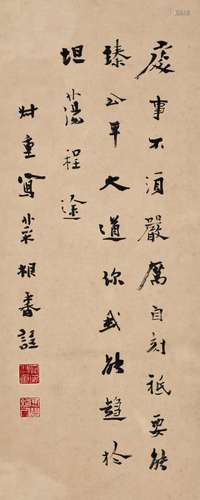 處事不須嚴厲自刻祗要能
臻公平大道你我能隨於
坦蕩程途
叔重寫菜根香註